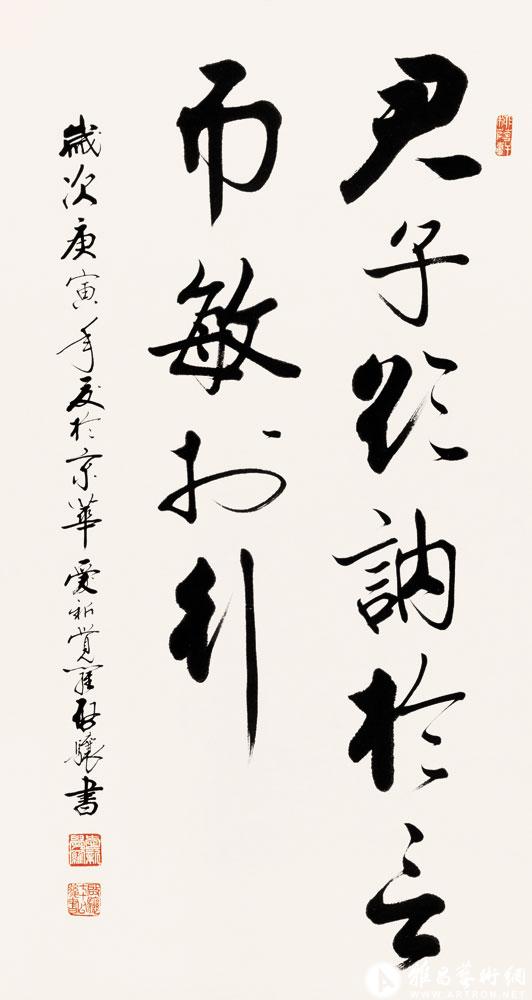 君子欲訥於言
而敏於行
歲次庚寅年夏於京華愛新覺羅啟驤書
愛新覺羅
雅昌藝術網
WWW.ARTRON.NET